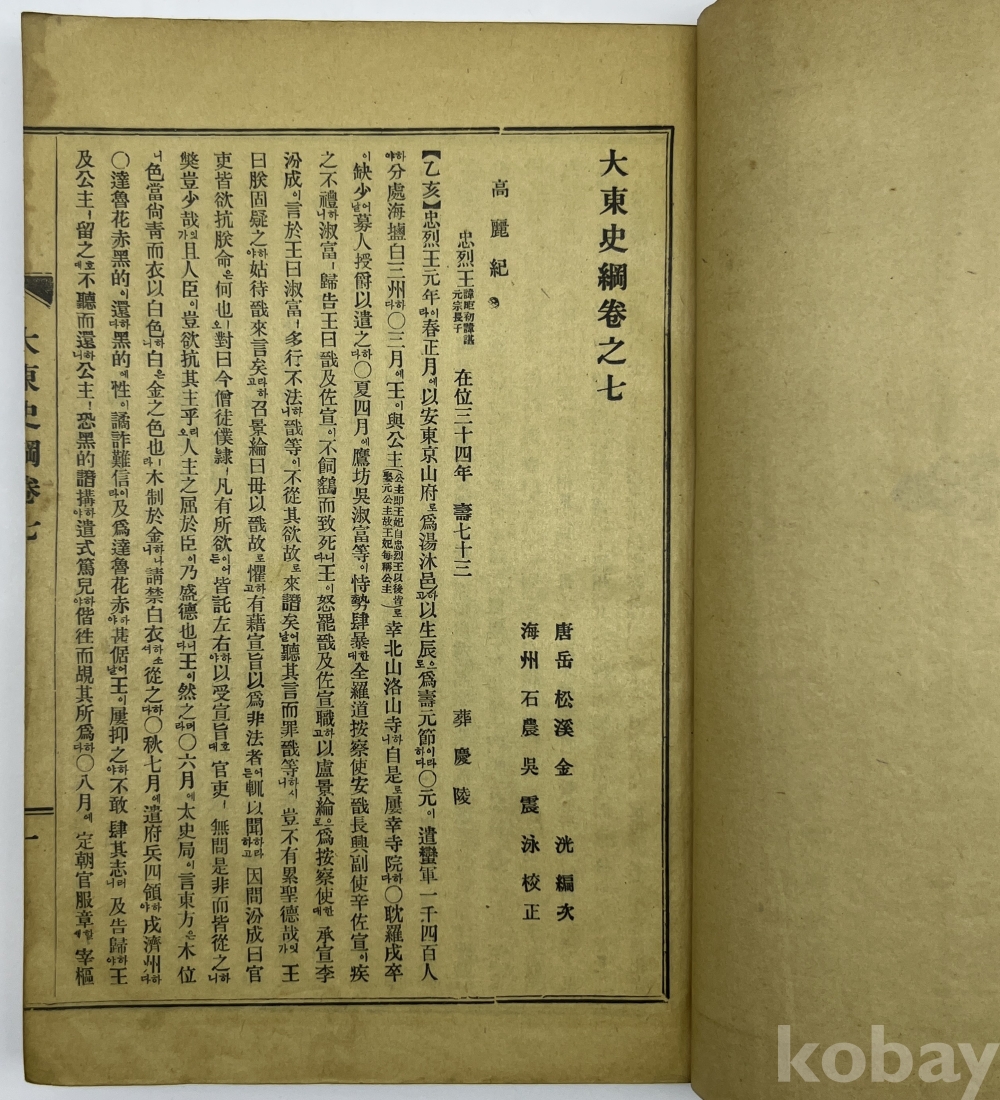 大東史綱卷之七
唐岳松溪金洸編次
海州石農吳震泳校正
高麗紀
忠烈王 諱昛初諱諶元宗長子 在位三十四年 壽七十三 葬慶陵
【乙亥】忠烈王元年이라春正月에以安東京山府로爲湯沐邑하고以生辰으로爲壽元節이라하다〇元이遣蠻軍一千四百人
하야分處海鹽白三州하다〇三月에王이與公主(公主即王妃自忠烈王以後皆娶元公主故王妃每稱公主)로幸北山洛山寺하니自是로屢幸寺院하다〇耽羅戍卒
이缺少어날募人授爵以遣之하다〇夏四月에鷹坊吳淑富等이恃勢肆暴한대全羅道按察使安戩長興副使辛佐宣이疾
之不禮하니淑富ㅣ歸告王曰戩及佐宣이不飼鷂而致死니다王이怒罷戩及佐宣職하고以盧景綸으로爲按察使한대承宣李
汾成이言於王曰淑富ㅣ多行不法하니戩等이不從其欲故로來譖矣어날聽其言而罪戩等하시니豈不有累聖德哉잇가王
曰朕固疑之하야姑待戩來言矣라하고召景綸曰毋以戩故로懼하고有藉宣旨以爲非法者어든輒以聞하라하고因問汾成曰官
吏皆欲抗朕命은何也오對曰今僧徒僕隷ㅣ凡有所欲이어든皆託左右하야以受宣旨호대官吏ㅣ無問是非而皆從之하니
獘豈少哉잇가且人臣이豈欲抗其主乎리오人主之屈於臣이乃盛德也니다王이然之러라〇六月에太史局이言東方은木位
니色當尙靑而衣以白色하니白은金之色也ㅣ라木制於金하니請禁白衣하소서從之하다〇秋七月에遣府兵四領하야戍濟州하다
〇達魯花赤黑的이還하다黑的에性이譎詐難信이라及爲達魯花赤하야甚倨어날王이屢抑之하야不敢肆其志러니及告歸하야王
及公主ㅣ留之호대不聽而還하니公主ㅣ恐黑的譖搆하야遣式篤兒하야偕徃而覘其所爲하다〇八月에定朝官服章할새宰樞
大東史綱卷七
一
kobay